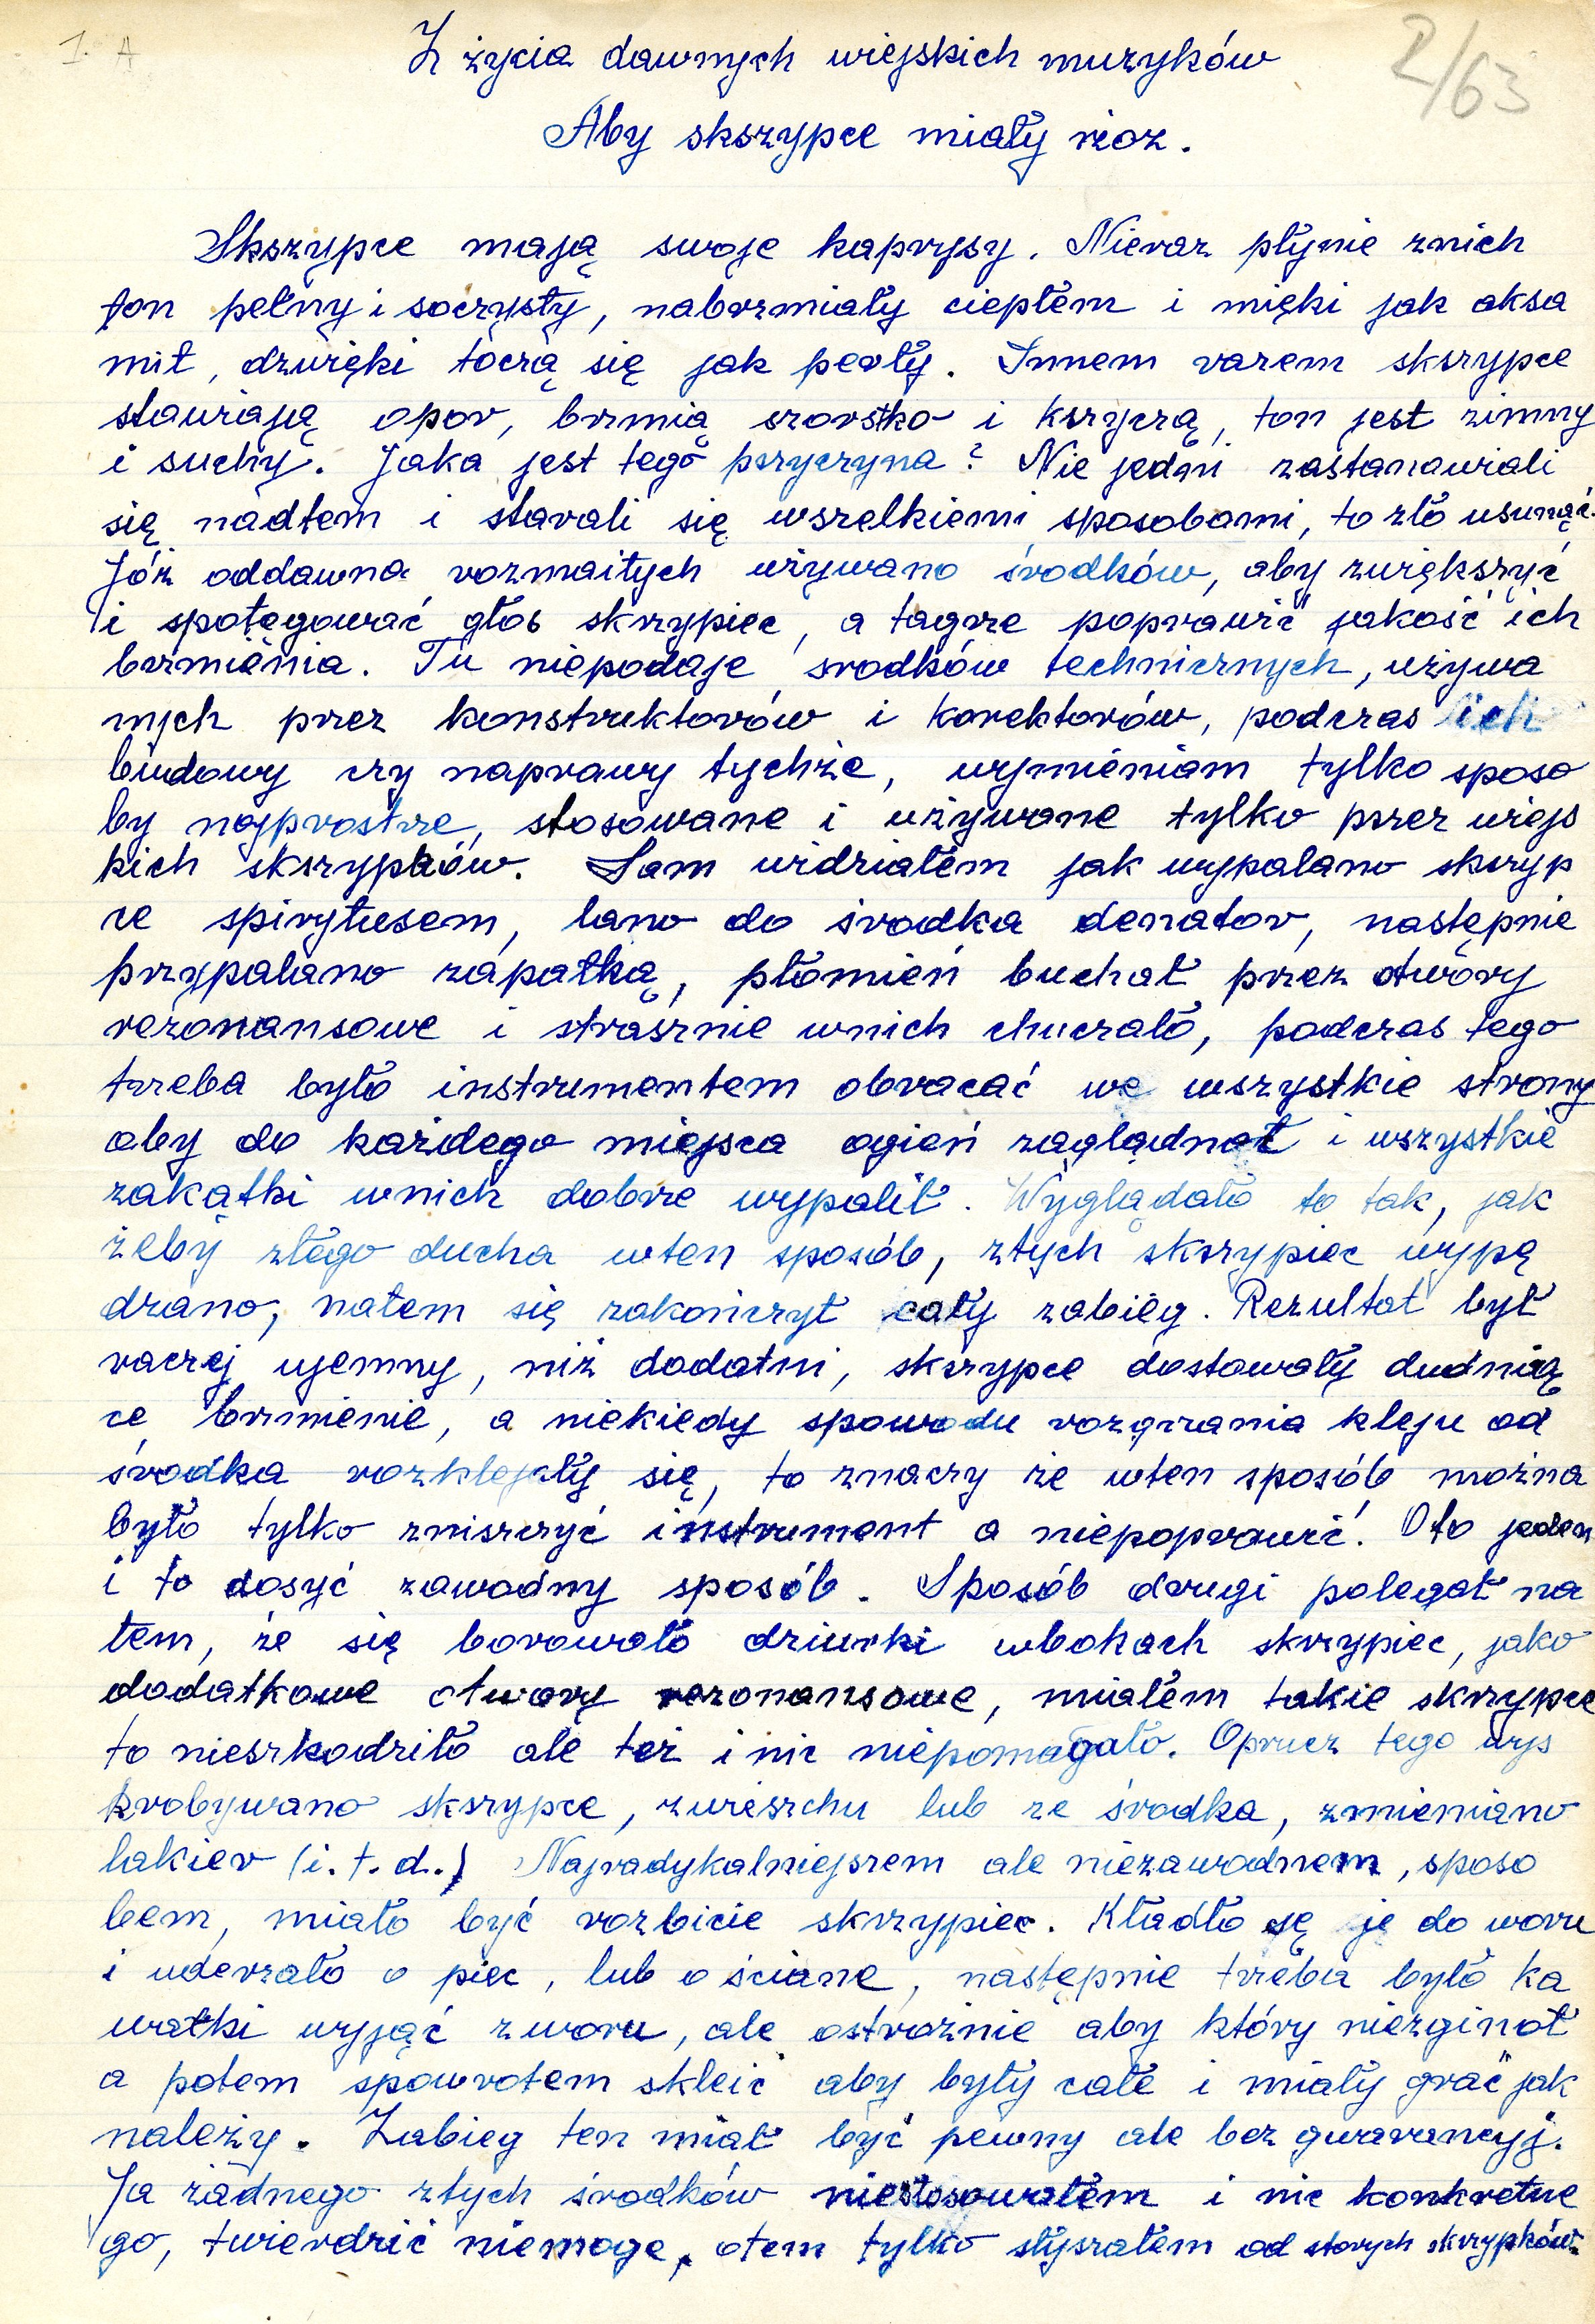 1. A
2/63
Z życia dawnych wiejskich muzyków
Aby skszypce miały
Skszypce mają swoje kaprysy. Nieraz płynie znich
ton pełny i soczysty, nabrzmiały ciepłem i mięki jak aksa
mit, dzwięki toczą się jak perły. Innem razem skszypce
stawiają opor, brzmią szorstko i kszyczą, ton jest zimny
i suchy. Jaka jest tego pszyczyna? Nie jedni zastanawiali
się nadtem i starali się wszelkiemi sposobami, to zło usunąć.
Jóż oddawna rozmaitych używano środków, aby zwiększyć
i spotęgować głos skrzypiec, a tagże poprawić jakość ich
brzmienia. Tu niepodaje srodków technicznych, używa
nych przez konstruktorów i korektorów, podczas ich
budowy czy naprawy tychże, wymieniam tylko sposo
by najprostrze, stosowane i używane tylko pszez wiejs
kich skszypków. Sam widziałem jak wypalano skszyp
ce spirytusem, lano do środka denator, następnie
przypalano zapałką, płomień buchał przez otwory
rezonansowe i strasznie wnich chuczało, podczas tego
trzeba było instrumentem obracać we wszystkie strony
aby do każdego miejsca ogień zaglądnoł i wszystkie
zakątki wnich dobrze wypalił. Wyglądało to tak, jak
żeby złego ducha wten sposób, ztych skszypiec wypą
dzano, natem się zakończył cały zabieg. Rezultat był
raczej ujemny, niż dodatni, skszypce dostawały dudnią
ce brzmienie, a niekiedy spowodu rozgrzania kleju od
środka rozklejały się, to znaczy że wten sposób można
było tylko zniszczyć instrument a niepoprawić. Oto jeden
i to dosyć zawodny sposób. Sposób drugi polegał na
tem, że się borowało dziurki wbokach skrzypiec, jako
dodatkowe otwory rezonansowe, miałem takie skrzypce
to nieszkodziło ale też i nic niepomagało. Oprucz tego wys
krobywano skszypce, zwieszchu lub ze środka, zmieniano
lakier (i. t. d.) Najradykalniejszem ale niezawodnem, sposo
bem, miało być rozbicie skrzypiec. Kładło się je do woru
i uderzało o piec, lub o ściane, następnie trzeba było ka
wałki wyjąć zworu, ale ostrożnie aby który niezginoł
a potem spowrotem skleić aby były całe i miały grać jak
należy. Zabieg ten miał być pewny ale bez gwarancyj.
Ja żadnego ztych środków niestosowałem i nic konkretne
go, twierdzić niemoge, otem tylko słyszałem od starych skrzypków.